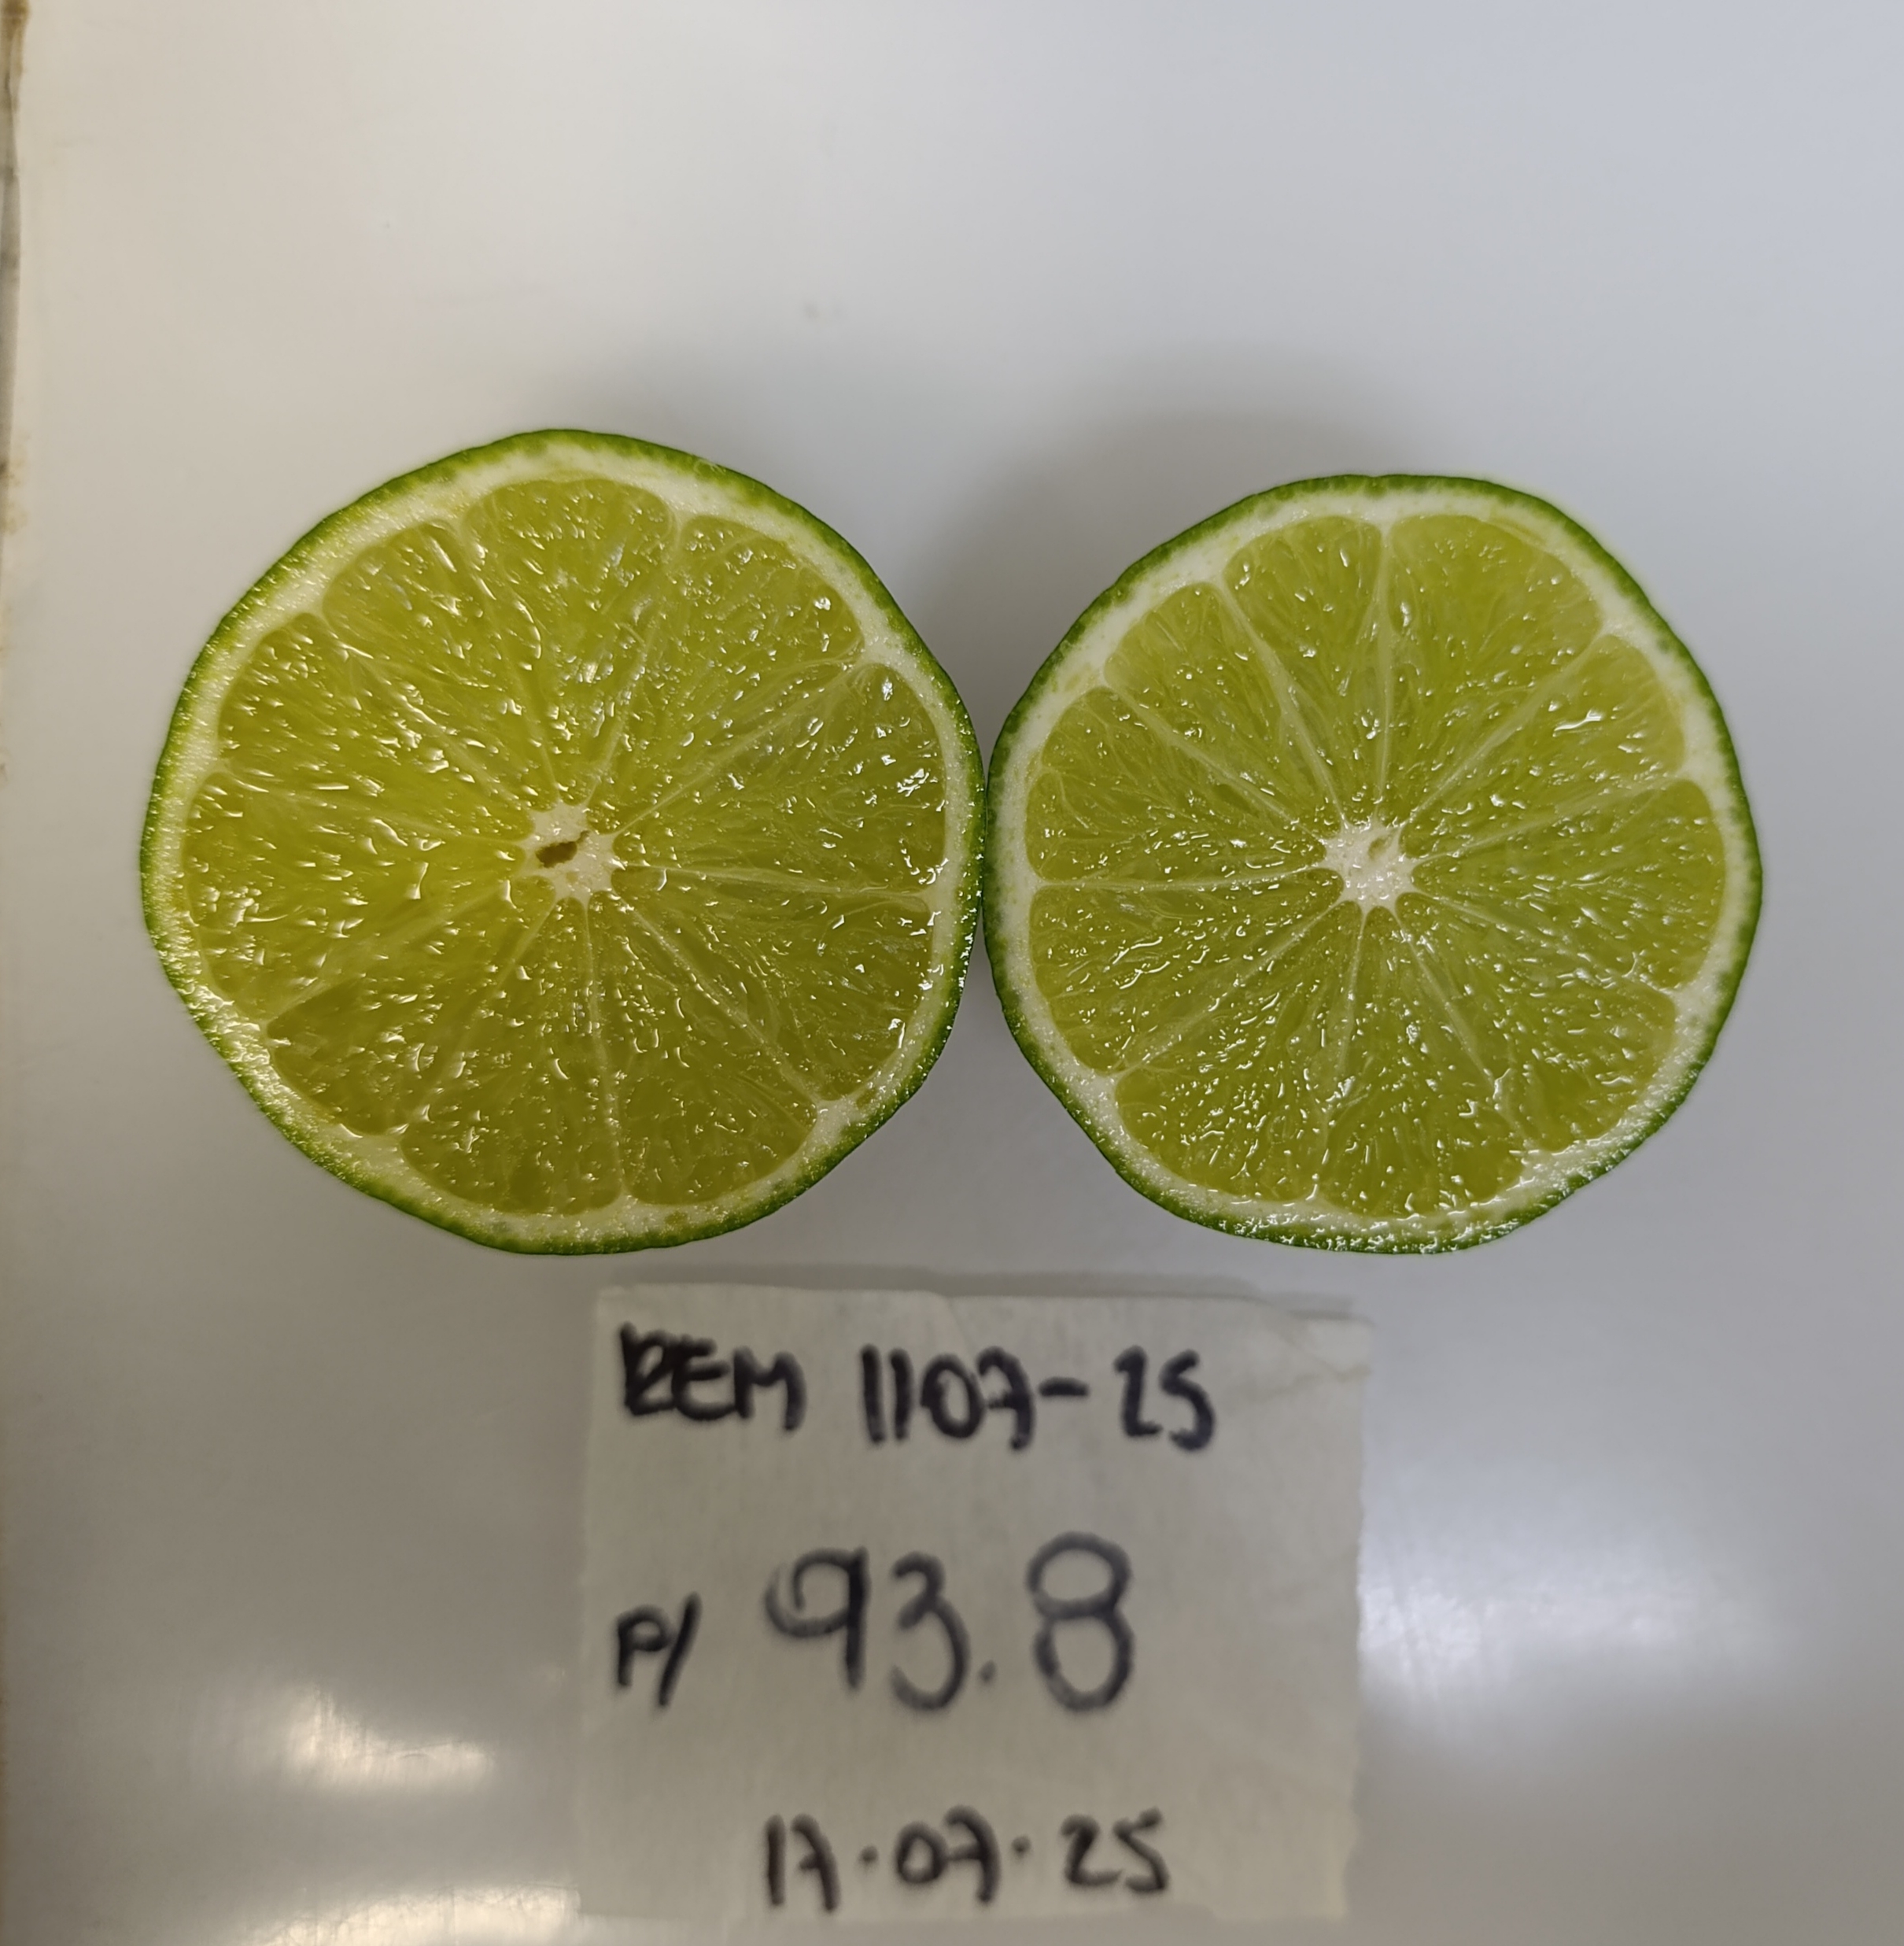 REM 1107-25
P/ 93.8
17.07.25